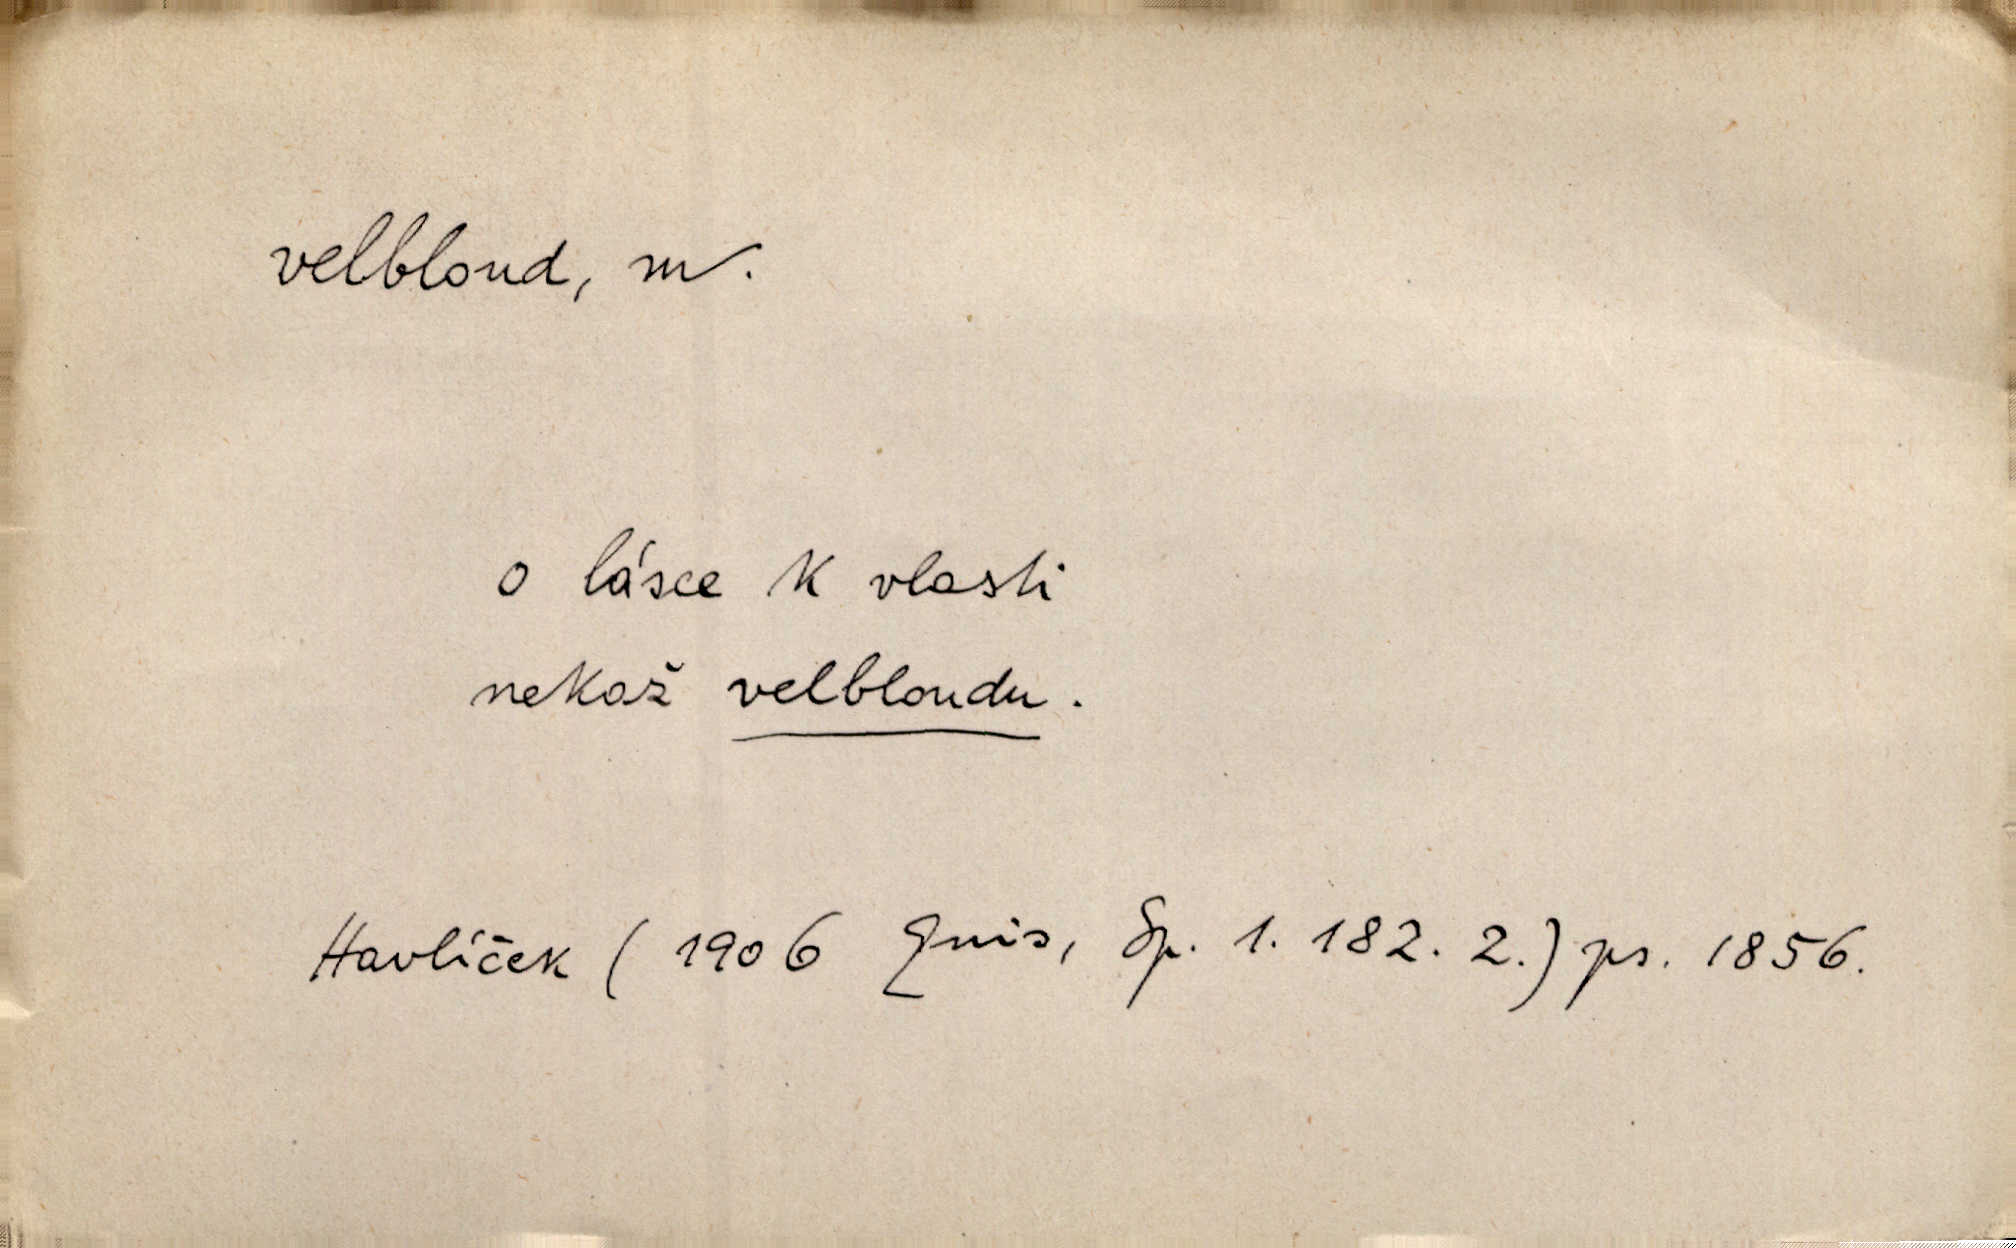 velbloud, m.
o lásce k vlasti
nekaž velbloudu.
Havlíček (1906 Quis, Sp. 1. 182. 2.) ps. 1856.